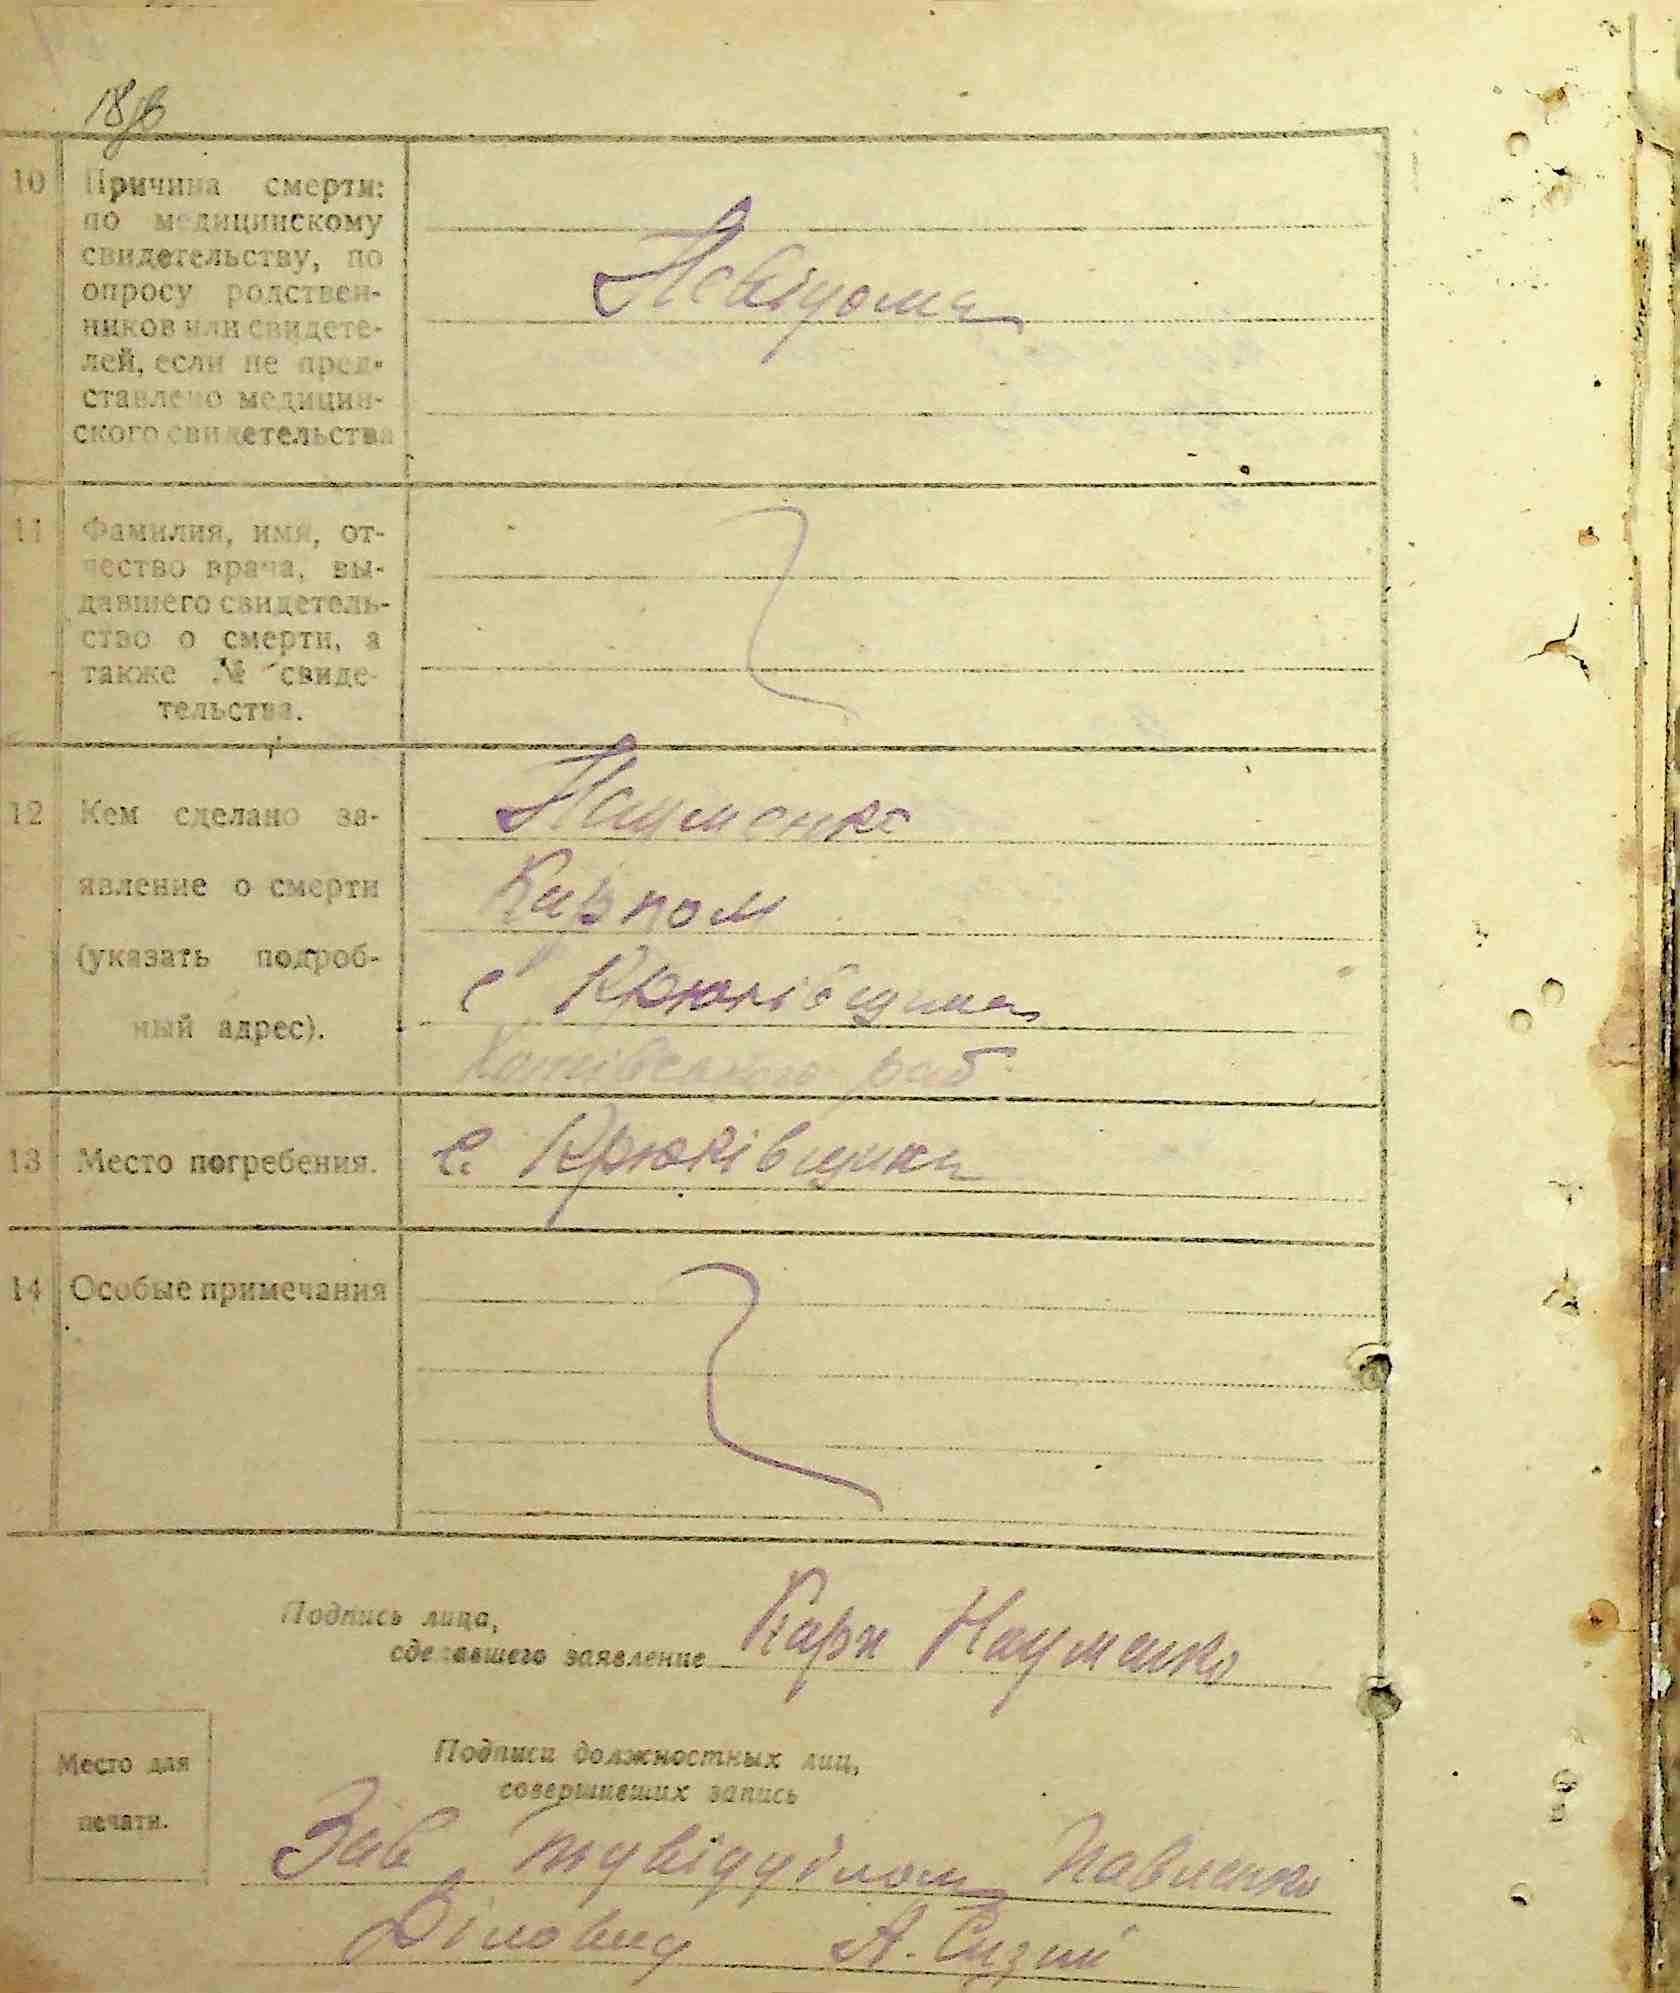 18
10 Причина смерти:
по медицинскому
свидетельству, по
опросу родствен-
ников или свидете-
лей, если не пред-
ставлено медицин-
ского свидетельства
Невідома
11 Фамилия, имя, от-
чество врача, вы-
давшего свидетель-
ство о смерти, а
также № свиде-
тельства.
12 Кем сделано за-
явление о смерти
(указать подроб-
ный адрес).
Науменко
Карпом
с Крюківщина
Хотівського
13 Место погребения.
с. Крюківщина
14 Особые примечания
Подпись лица,
сделавшего заявление Карп Науменко
Место для
печати.
Подписи должностных лиц,
совершивших запись
Зав. підвідділом Павленко
Діловод А.